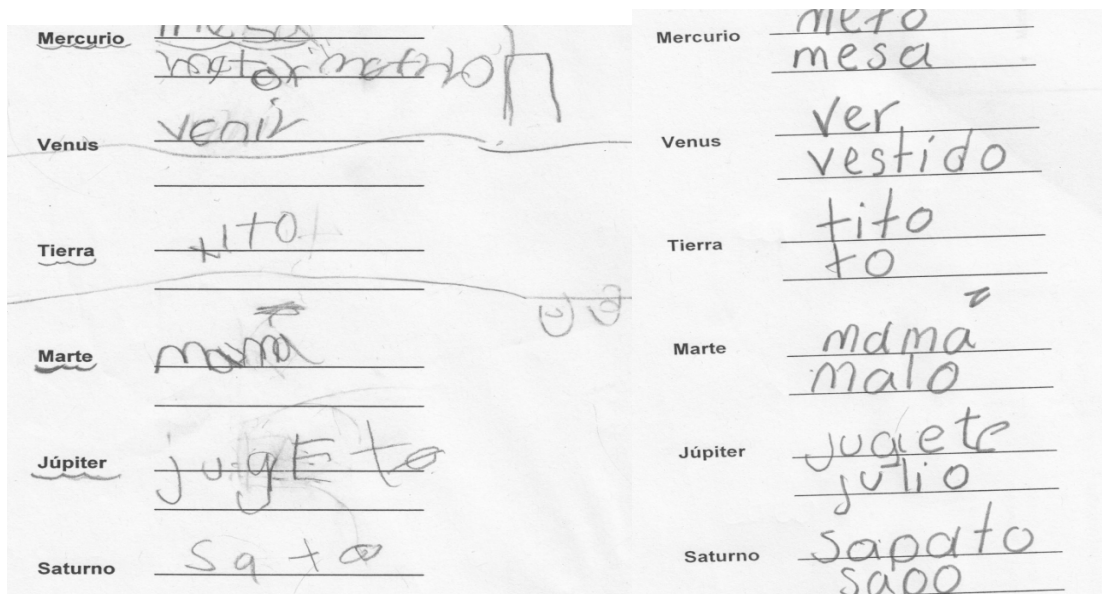 Mercurio mesa
Venus venir
Tierra
Marte mamá
Júpiter
Saturno
Mercurio meto
mesa
Venus ver
vestido
Tierra tito
to
Marte mamá
malo
Júpiter jugete
julio
Saturno sapato
sapo